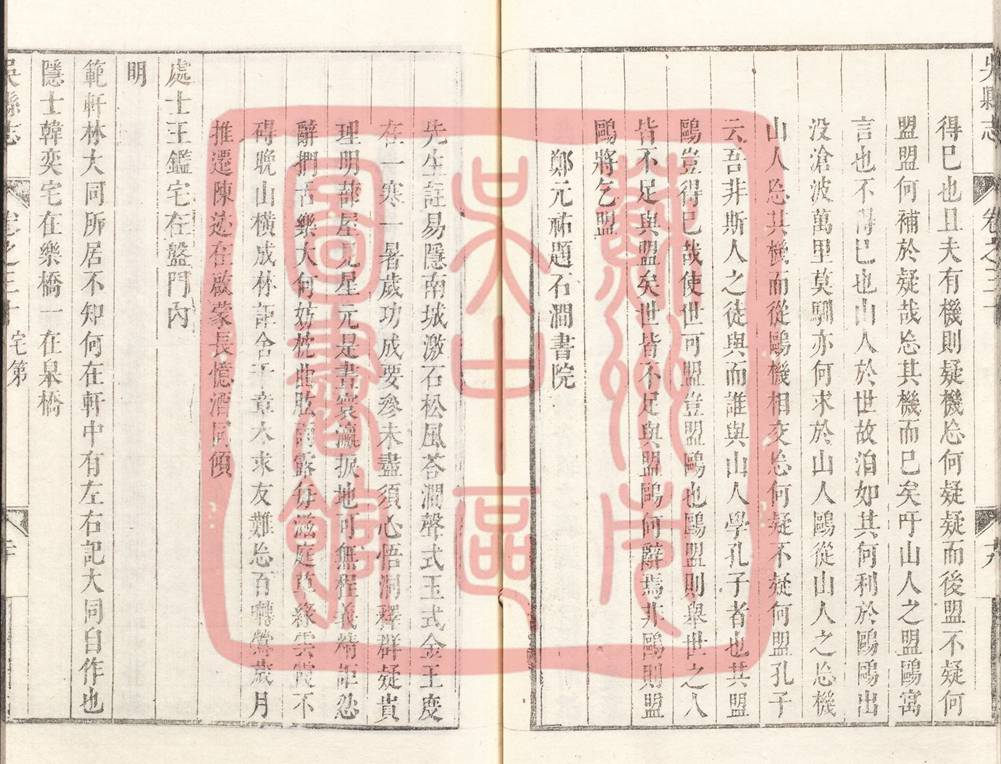 吳縣志
卷之三十
十九
得巳也且夫有機則疑機忘何疑疑而後盟不疑何
盟盟何補於疑哉忘其機而巳矣吁山人之盟鷗寓
言也不得巳也山人於世故泊如其何利於鷗鷗出
没滄波萬里莫馴亦何求於山人鷗從山人之忘機
山人忘其機而從鷗機相交忘何疑不疑何盟孔子
云吾非斯人之徒與而誰與山人學孔子者也其盟
鷗豈得巳哉使世可盟豈盟鷗也鷗盟則舉世之人
皆不足與盟矣世皆不足與盟鷗何辭焉非鷗則盟
鷗將乞盟
鄭元祐題石澗書院
先生註易隱南城激石松風荅澗聲式玉式金王度
在一寒一暑歲功成要參未盡須心悟洞釋群疑貴
理明蔀屋見星元是晝寰瀛振地可無程義精詎忍
辭捫舌樂大何妨枕曲肱雨露每滋庭草綠雲霞不
碍晚山橫成林詎舍千章木求友難忘百囀鶯歲月
推遷陳迹在啟蒙長憶酒同傾
處士王鑑宅在盤門內
明
範軒林大同所居不知何在軒中有左右記大同自作也
隱士韓奕宅在樂橋一在臬橋
吳縣志
卷之三十
宅第
二十
蘇州市
吳中區
圖書館